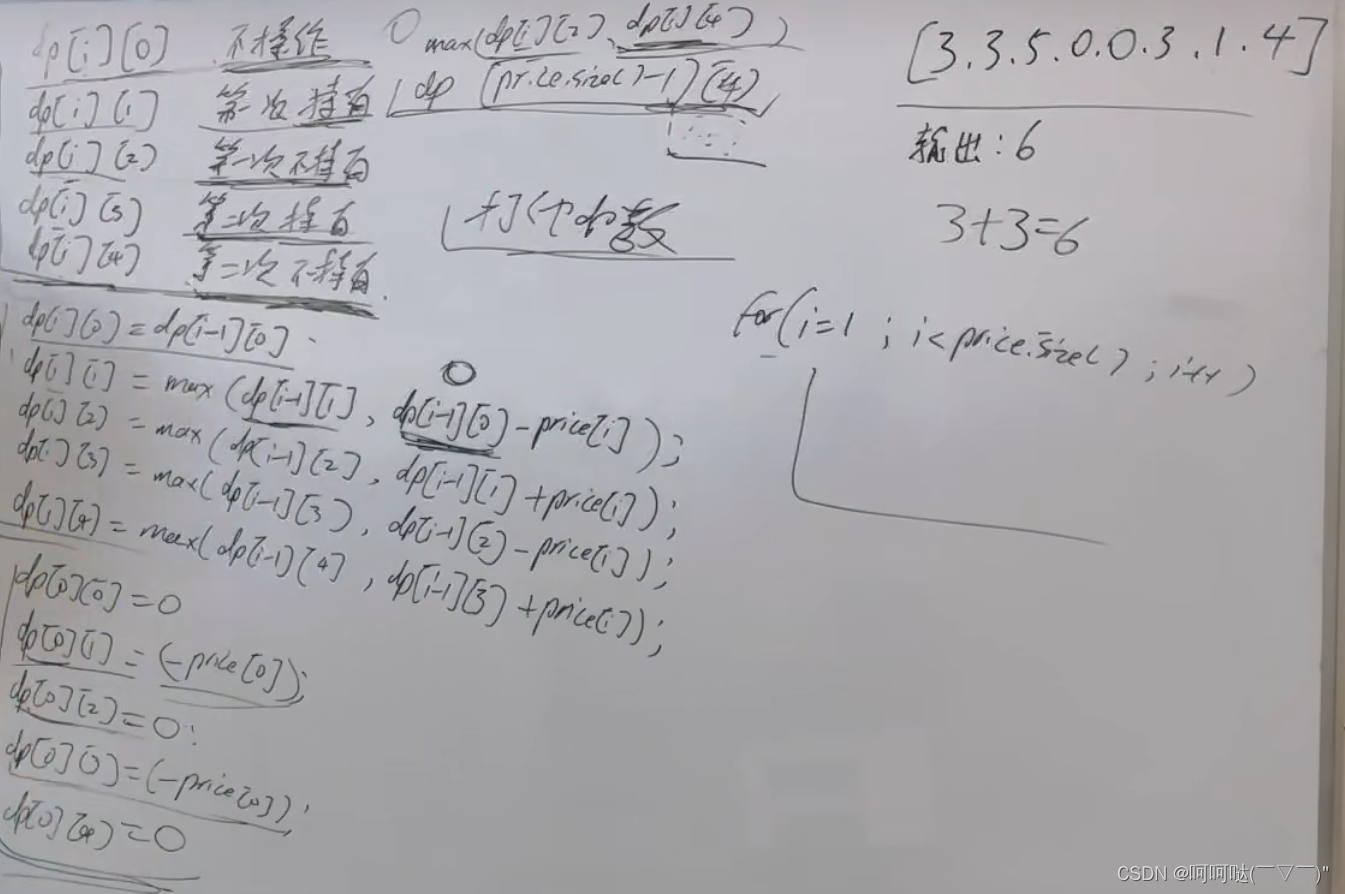 dp[i][0] 不操作
dp[i][1] 第一次持有
dp[i][2] 第一次不持有
dp[i][3] 第二次持有
dp[i][4] 第二次不持有
max(dp[i][2], dp[i][4])
dp[price.size()-1][4]
打印dp数
[3.3.5.0.0.3.1.4]
输出:6
3+3=6
for(i=1; i<price.size(); i++)
dp[i][0]=dp[i-1][0]
dp[i][1]=max(dp[i-1][1], dp[i-1][0]-price[i]);
dp[i][2]=max(dp[i-1][2], dp[i-1][1]+price[i]);
dp[i][3]=max(dp[i-1][3], dp[i-1][2]-price[i]);
dp[i][4]=max(dp[i-1][4], dp[i-1][3]+price[i]);
dp[0][0]=0
dp[0][1]=(-price[0]);
dp[0][2]=0;
dp[0][3]=(-price[0]);
dp[0][4]=0
CSDN @呵呵哒(￣▽￣)"